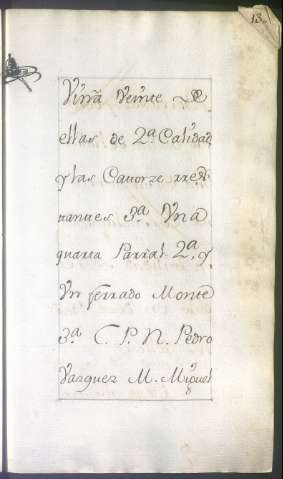 13.
Viña Veinte de
ellas de 2ª Calidad
y las Catorze rres
tantes 3ª Una
quarta Parral 2ª, y
Un ferrado Monte
3ª C. P. N. Pedro
Vazquez M. Miguel